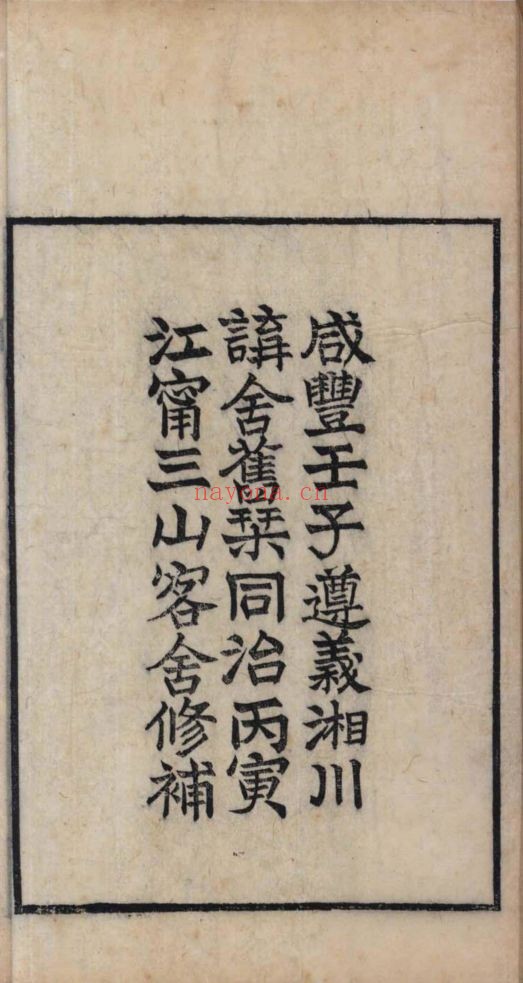 咸豐壬子遵義湘川
講舍舊琹同治丙寅
江甯三山客舍修補
nayona.cn